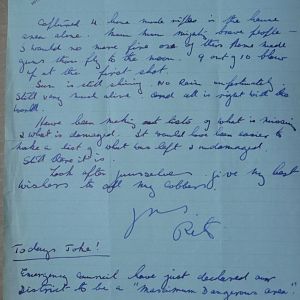 Captured 4 home made rifles in the house
area alone. Mau Mau mighty brave people -
I would no more fire one of these home made
guns than fly to the moon. 9 out of 10 blow
up at the first shot.
Sun is still shining. No Rain unfortunately.
Still very much alive & all is right with the
world.
Have been making out lists of what is missing
& what is damaged. It would have been easier to
make a list of what was left & undamaged.
Still there it is.
Look after yourselves. Give my best
wishes to all my cobbers.
Yours
Todays Joke!
Emergency Council have just declared our
District to be a "Maximum Dangerous area".